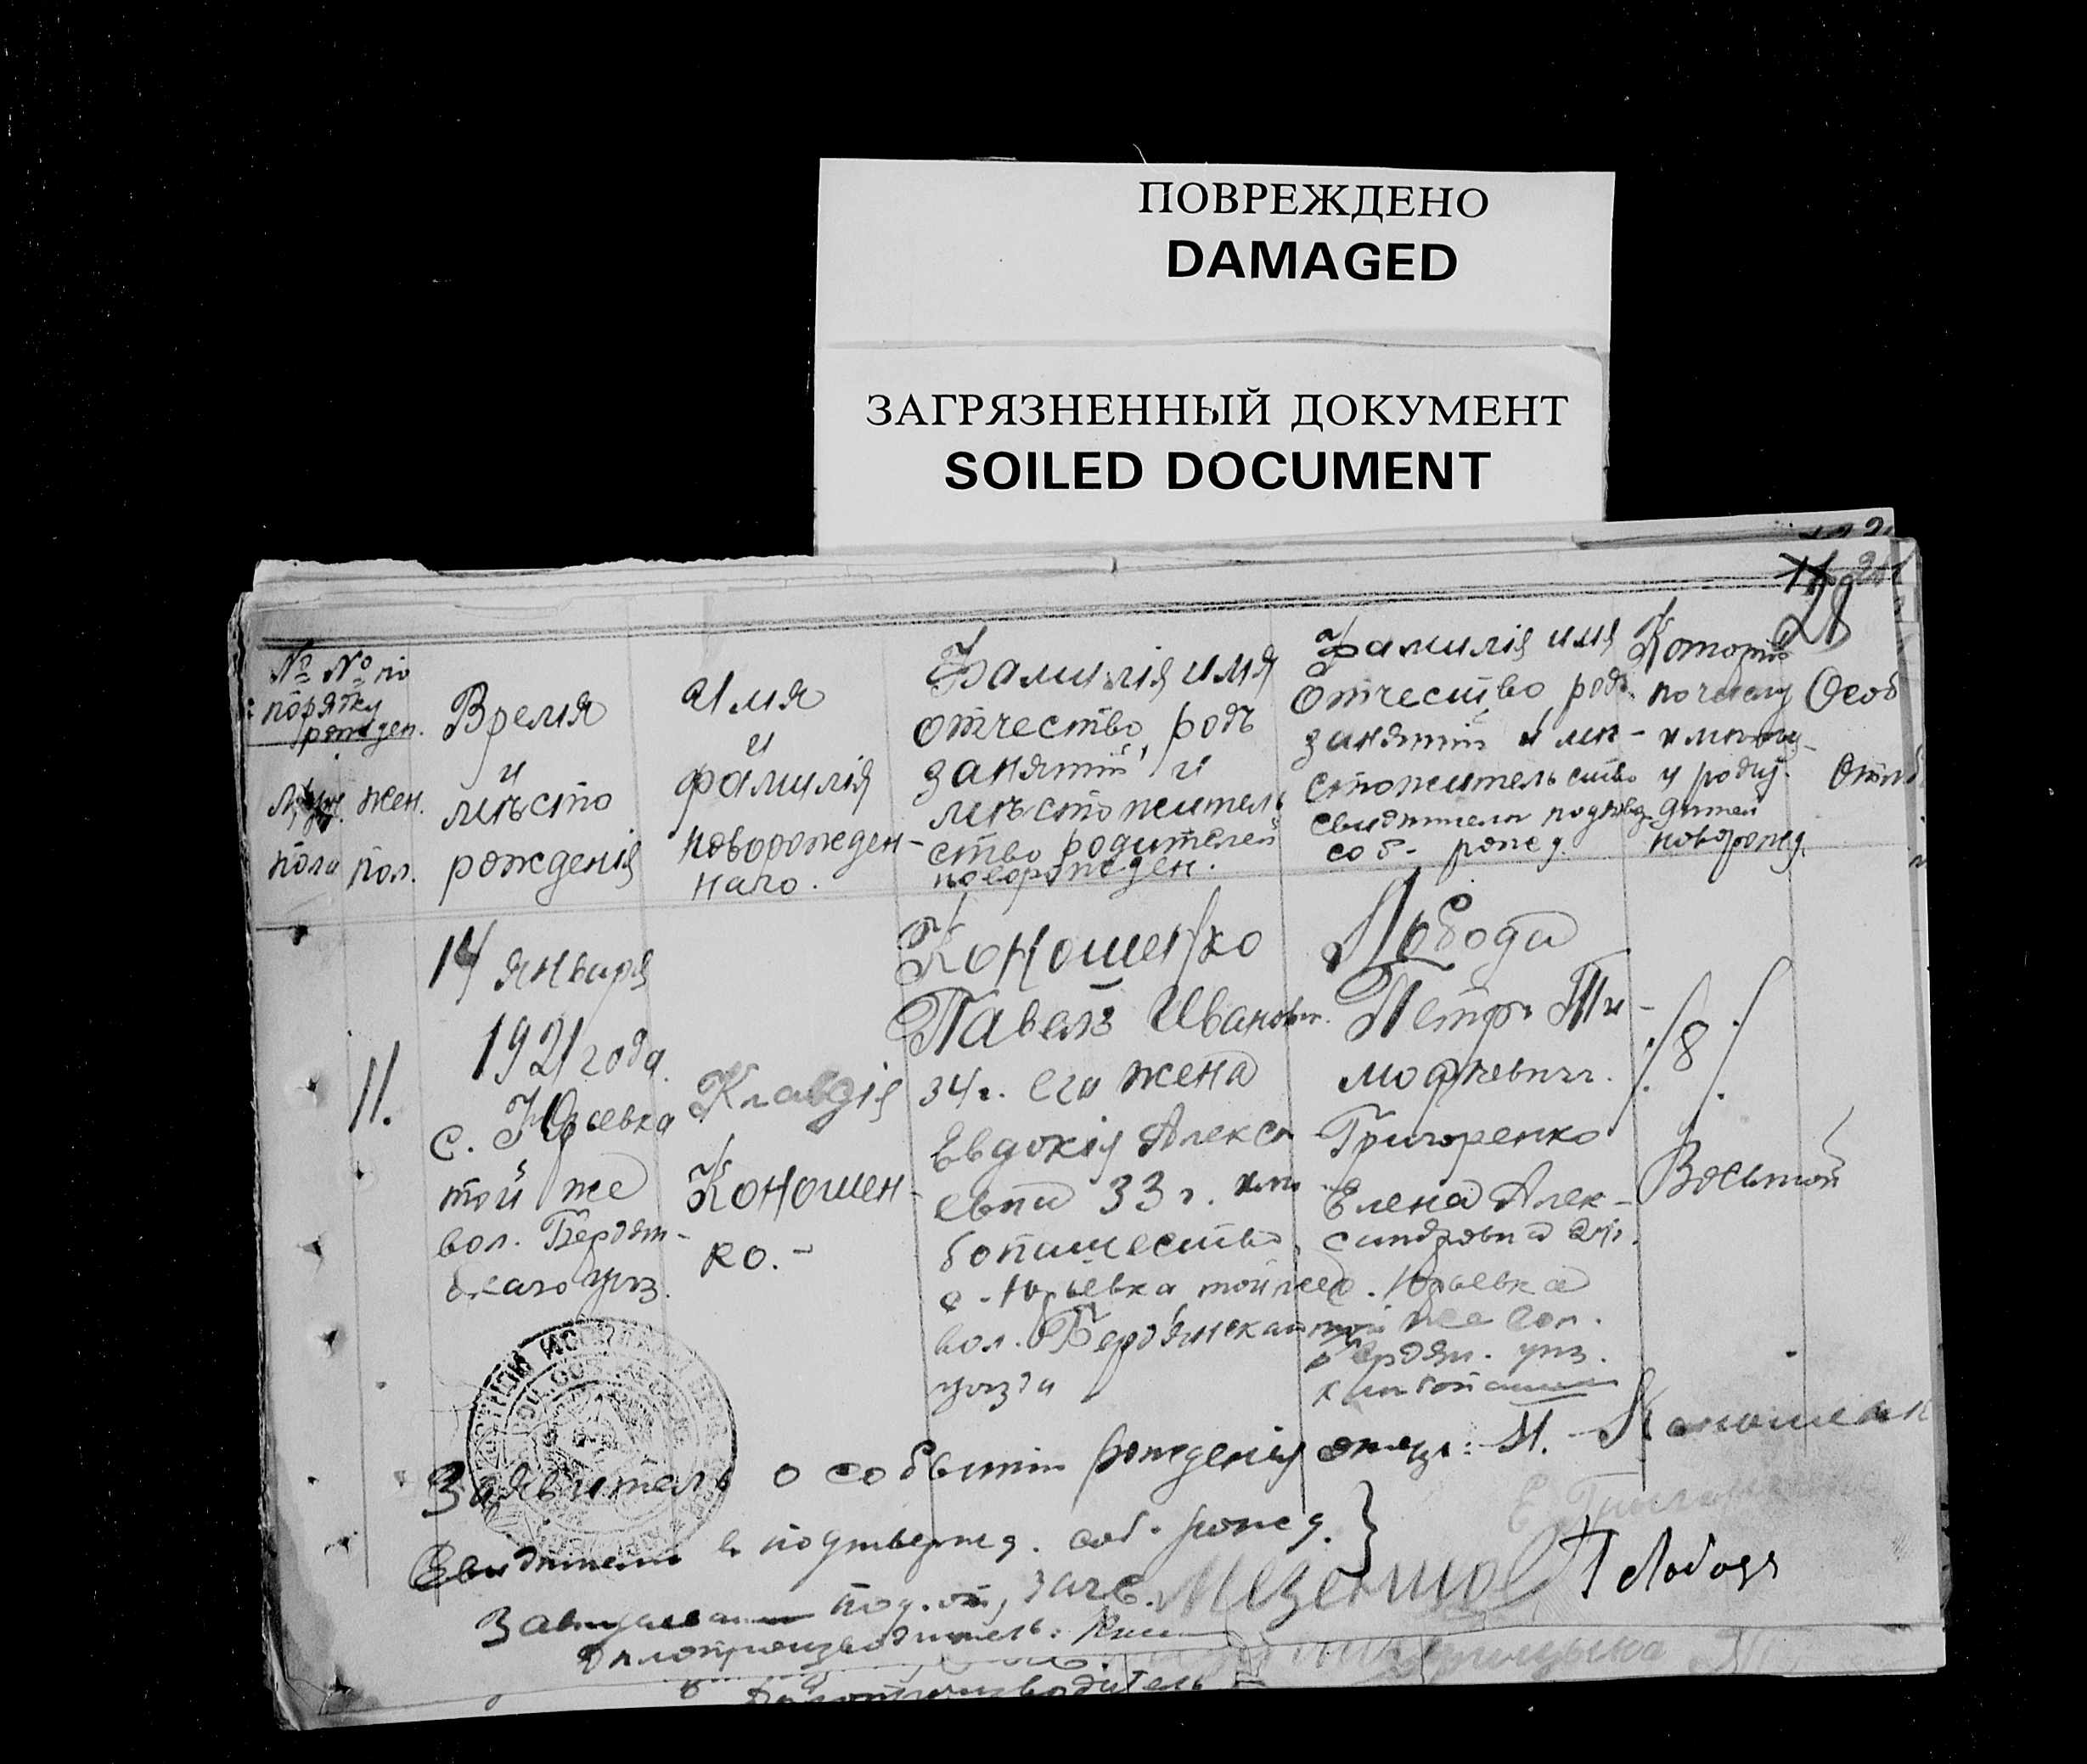 ПОВРЕЖДЕНО
DAMAGED
ЗАГРЯЗНЕННЫЙ ДОКУМЕНТ
SOILED DOCUMENT
28
№ № по
порядку
рожден.
муж. жен.
пола пол.
Время
и
мѣсто
рожденія
Имя
и
фамилія
новорожден-
наго.
Фамилія имя
отчество, родъ
занятій и
мѣстожитель
ство родителей
новорожден.
Фамилія имя
отчество род.
занятій и мѣ-
стожительство
свидѣтели подтвед
соб- рожд.
Который
по числу
и родит.
дителей
новорожд.
Особ
Отм
11.
14 января
1921 года.
с. Юрьевка
той же
вол. Бердян-
скаго уѣз.
Клавдія
Коношен-
ко.-
Коношенко
Павелъ Иванов.
34 г. его жена
Евдокія Алекс
евна 33 г. хлѣ
бопашество,
с. Юрьевка той же
вол. Бердянскаго
уѣзда
Лобода
Петръ Ти-
мофѣевич.
Григоренко
Елена Алек-
сандровна 24 г.
с. Юрьевка
той же вол.
Бердян. уѣз.
хлѣбопашец
/8/
Восьмой
Заявитель о событіи рожденія отец: П. Коношенк
Свидѣтели в подтвержд. соб. рожд. } Е. Григоренко
П Лобода
Завѣдывающ под. от. загс. Мезенцов
Дѣлопроизводитель:
Дѣлопроизводитель